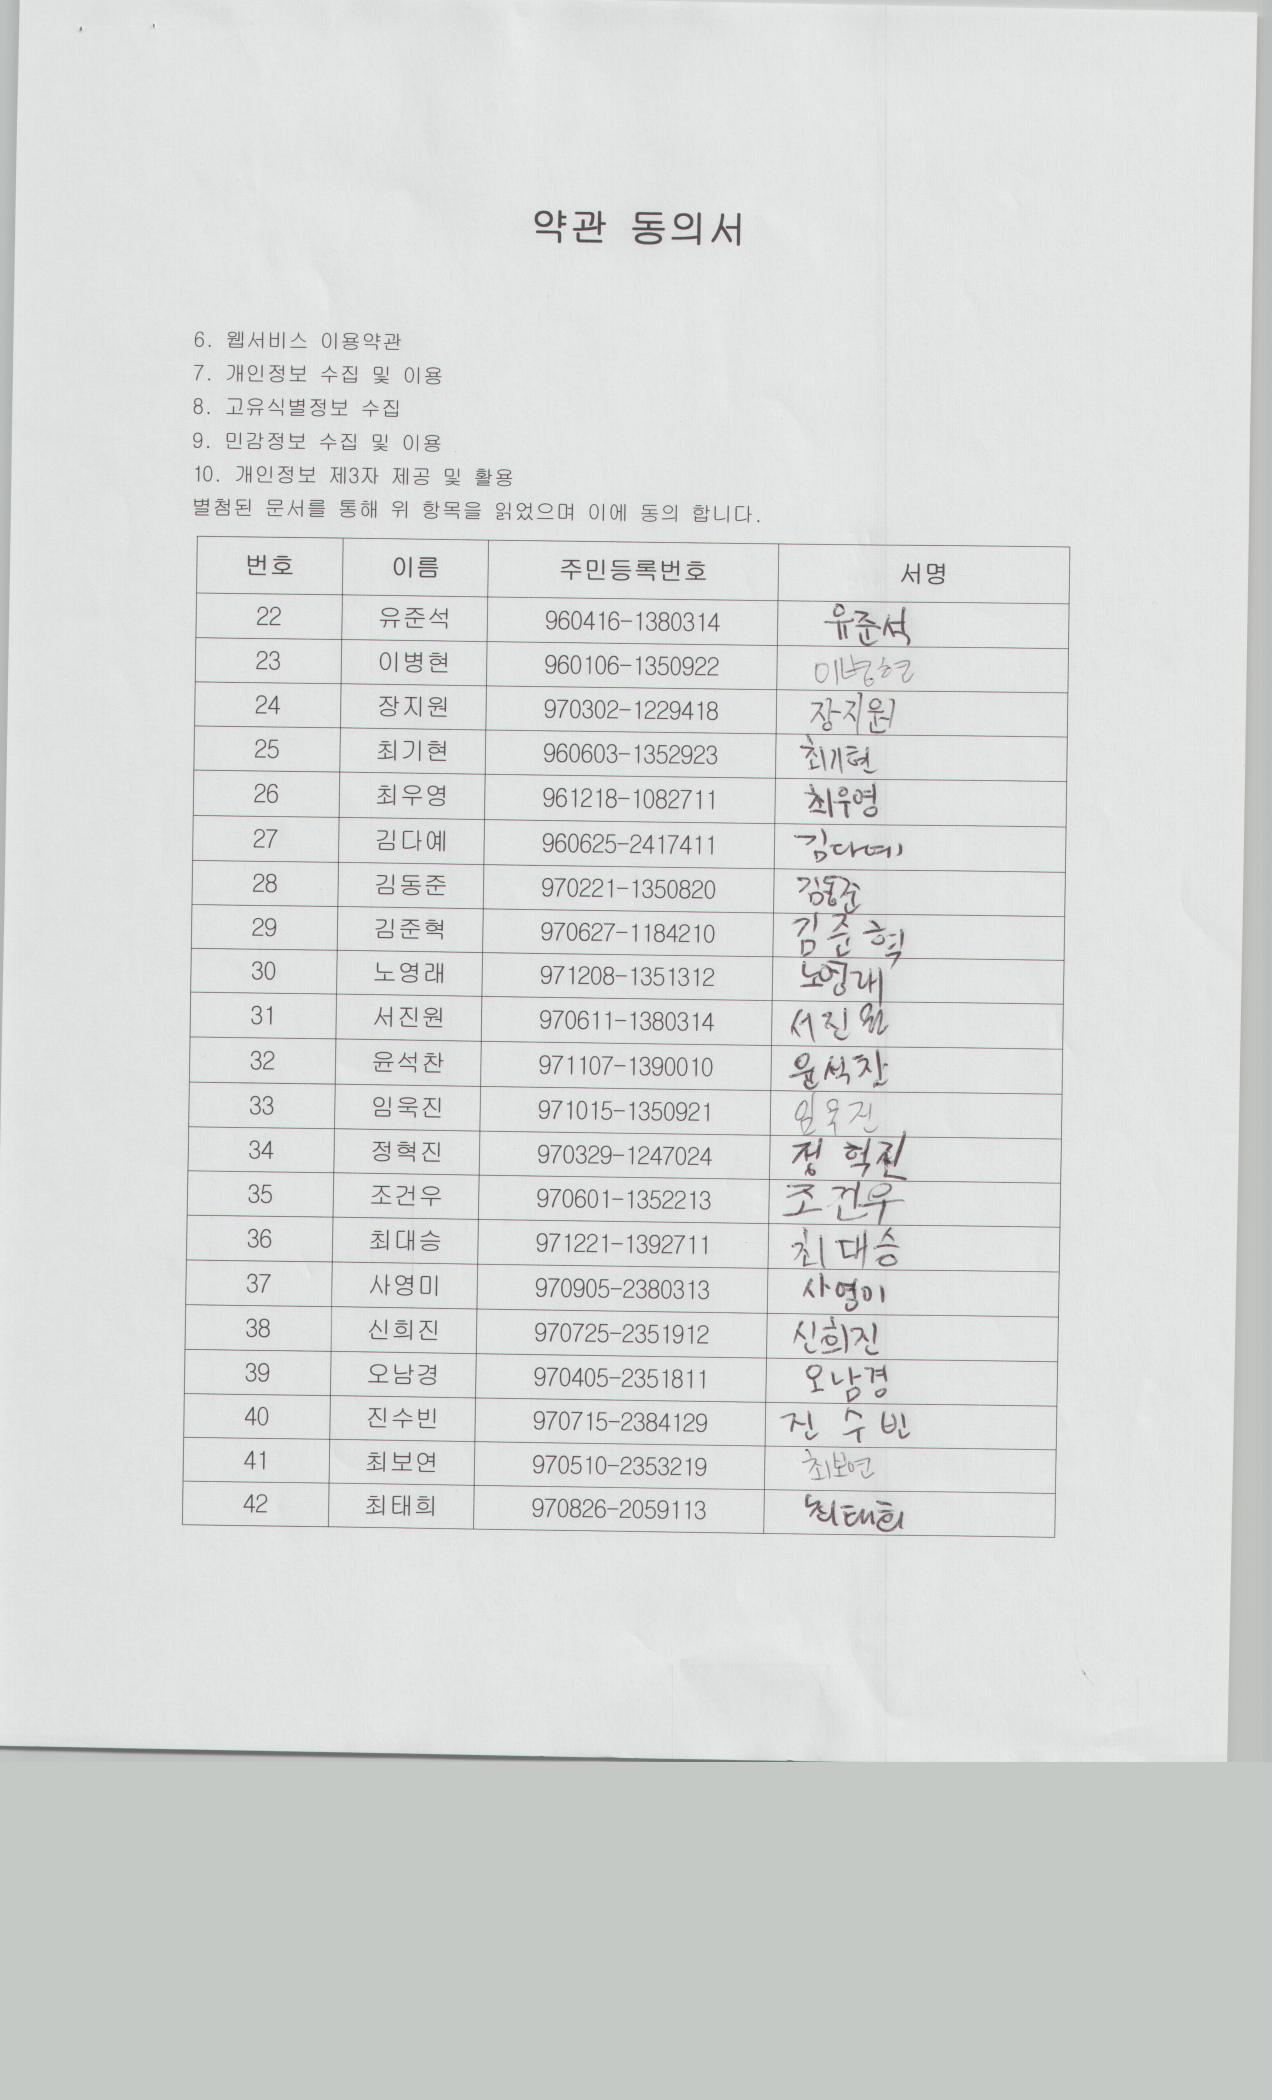 약관 동의서
6. 웹서비스 이용약관
7. 개인정보 수집 및 이용
8. 고유식별정보 수집
9. 민감정보 수집 및 이용
10. 개인정보 제3자 제공 및 활용
별첨된 문서를 통해 위 항목을 읽었으며 이에 동의 합니다.
번호 이름 주민등록번호 서명
22 유준석 960416-1380314 유준석
23 이병현 960106-1350922 이병현
24 장지원 970302-1229418 장지원
25 최기현 960603-1352923 최기현
26 최우영 961218-1082711 최우영
27 김다예 960625-2417411 김다예
28 김동준 970221-1350820 김동준
29 김준혁 970627-1184210 김준혁
30 노영래 971208-1351312 노영래
31 서진원 970611-1380314 서진원
32 윤석찬 971107-1390010 윤석찬
33 임욱진 971015-1350921 임욱진
34 정혁진 970329-1247024 정혁진
35 조건우 970601-1352213 조건우
36 최대승 971221-1392711 최대승
37 사영미 970905-2380313 사영미
38 신희진 970725-2351912 신희진
39 오남경 970405-2351811 오남경
40 진수빈 970715-2384129 진 수 빈
41 최보연 970510-2353219 최보연
42 최태희 970826-2059113 최태희